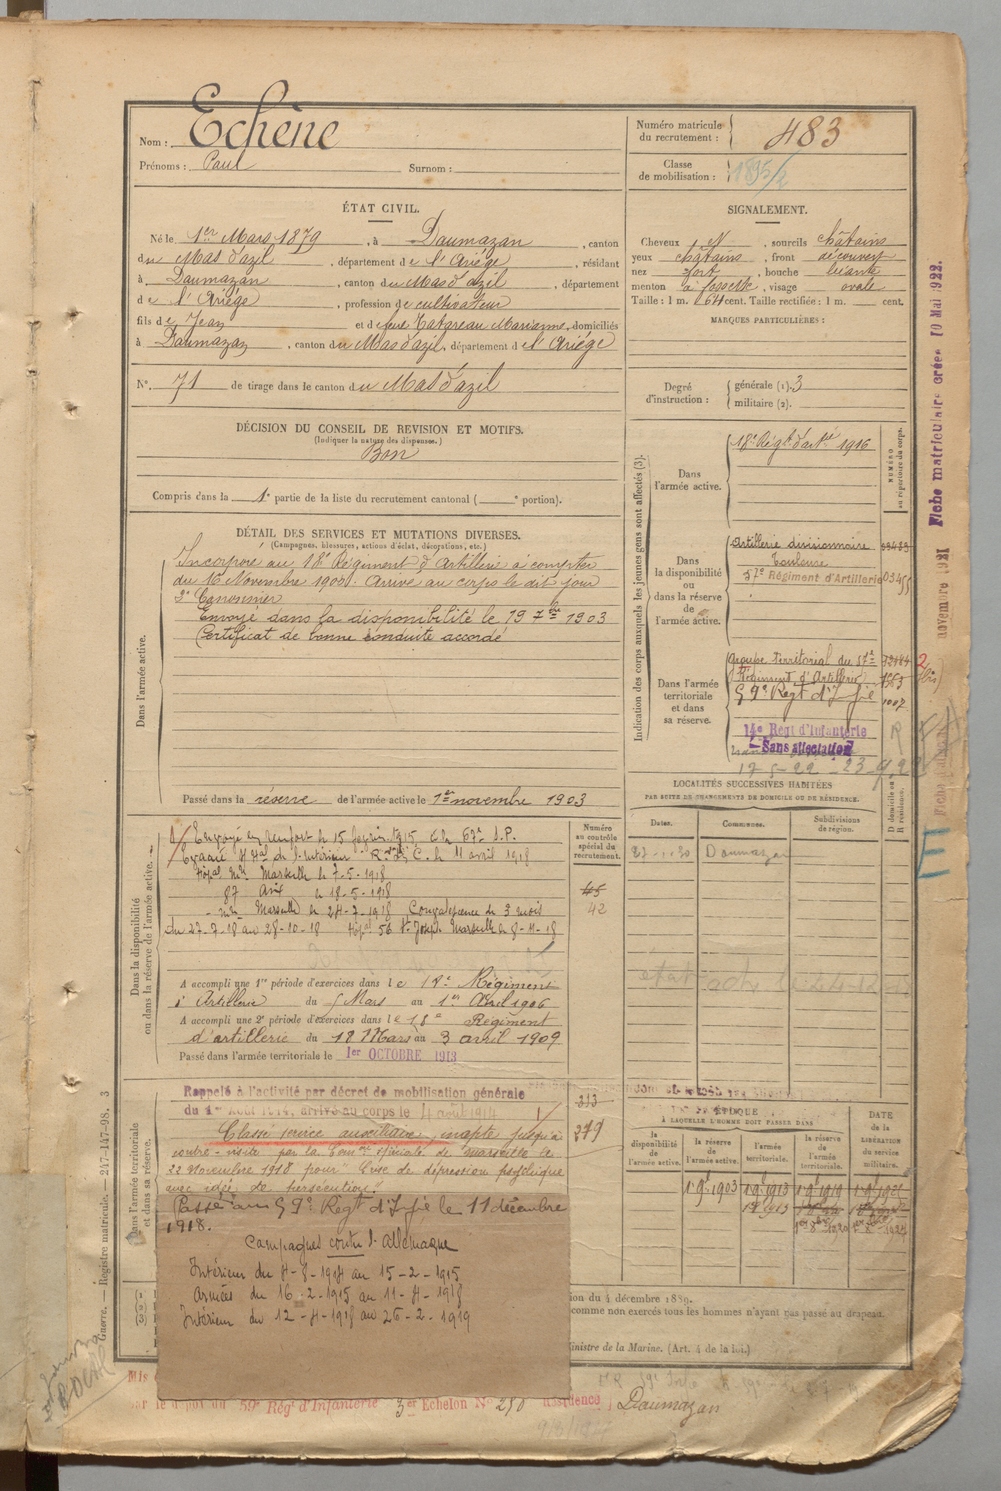 Nom : Echène
Prénoms : Paul Surnom :
Numéro matricule du recrutement : 483
Classe de mobilisation : 1895/2
ÉTAT CIVIL.
Né le 1er Mars 1879, à Daumazan, canton
du Mas d'azil, département de l'Ariège, résidant
à Daumazan, canton du Mas d'azil, département
de l'Ariège, profession de cultivateur
fils de Jean et de feue Marianne, domiciliés
à Daumazan, canton du Mas d'azil, département de l'Ariège
N° 71 de tirage dans le canton du Mas d'azil
SIGNALEMENT.
Cheveux N, sourcils châtains
yeux châtains, front découvert
nez fort, bouche béante
menton à fossette, visage ovale
Taille : 1 m. 64 cent. Taille rectifiée : 1 m. cent.
MARQUES PARTICULIÈRES :
Degré d'instruction : générale (1). 3
militaire (2).
DÉCISION DU CONSEIL DE REVISION ET MOTIFS.
(Indiquer la nature des dispenses.)
Bon
Compris dans la 1e partie de la liste du recrutement cantonal ( e portion).
DÉTAIL DES SERVICES ET MUTATIONS DIVERSES.
(Campagnes, blessures, actions d'éclat, décorations, etc.)
Dans l'armée active.
Incorporé au 18e Régiment d'Artillerie à compter
du 16 Novembre 1900. Arrivé au corps le dit jour
2e Canonnier
Envoyé dans la disponibilité le 19 7bre 1903
Certificat de bonne conduite accordé
Passé dans la réserve de l'armée active le 1er novembre 1903
Indication des corps auxquels les jeunes gens sont affectés (3).
NUMÉRO au répertoire du corps.
Dans l'armée active.
18e Régt d'art 1916
Dans la disponibilité ou dans la réserve de l'armée active.
Artillerie divisionnaire
Toulouse
57e Régiment d'Artillerie 03455
Dans l'armée territoriale et dans sa réserve.
Groupe Territorial du 57e
Régiment d'Artillerie
59e Régt d'Infie 1007
14e Régt d'Infanterie
Sans affectation
LOCALITÉS SUCCESSIVES HABITÉES
PAR SUITE DE CHANGEMENTS DE DOMICILE OU DE RÉSIDENCE.
Dates. Communes. Subdivisions de région. D domicile ou R résidence.
Daumazan
Dans la disponibilité ou dans la réserve de l'armée active.
Numéro au contrôle spécial du recrutement.
45
42
Envoyé en renfort le 15 février 1915
le 11 avril 1918
Marseille le 7-5-1918
87 le 18-5-1918
Marseille le 24-7-1918 Convalescence de 3 mois
du 27-7-18 au 28-10-18 56 St Joseph Marseille le 8-11-18
A accompli une 1re période d'exercices dans le 18e Régiment
d'Artillerie du Mars au 1er Avril 1906
A accompli une 2e période d'exercices dans le 18e Régiment
d'artillerie du 18 Mars au 3 avril 1909
Passé dans l'armée territoriale le 1er OCTOBRE 1913
Dans l'armée territoriale et dans sa réserve.
Rappelé à l'activité par décret de mobilisation générale
du 1er Août 1914, arrivé au corps le 4 août 1914
313
379
Classé service auxiliaire, inapte jusqu'à
contre-visite par la Comon spéciale de Marseille le
22 Novembre 1918 pour "crise de dépression psychique
avec idées de persécution."
Passé au 59e Régt d'Infie le 11 décembre
1918.
Campagnes contre l'Allemagne
Intérieur du 4-8-1914 au 15-2-1915
Armées du 16-2-1915 au 11-4-1918
Intérieur du 12-4-1918 au 26-2-1919
ÉPOQUE
À LAQUELLE L'HOMME DOIT PASSER DANS
la disponibilité de l'armée active. la réserve de l'armée active. l'armée territoriale. la réserve de l'armée territoriale. DATE de la LIBÉRATION du service militaire.
1er 9bre 1903
ion du 4 décembre 1889.
comme non exercés tous les hommes n'ayant pas passé au drapeau.
inistre de la Marine. (Art. 4 de la loi.)
par le dépôt du 59e Régt d'Infanterie 3er Echelon N° 250 Résidence Daumazan
Fiche matriculaire créée 10 Mai 1922.
novembre 1921
Guerre. — Registre matricule. — 247-147-98. 3